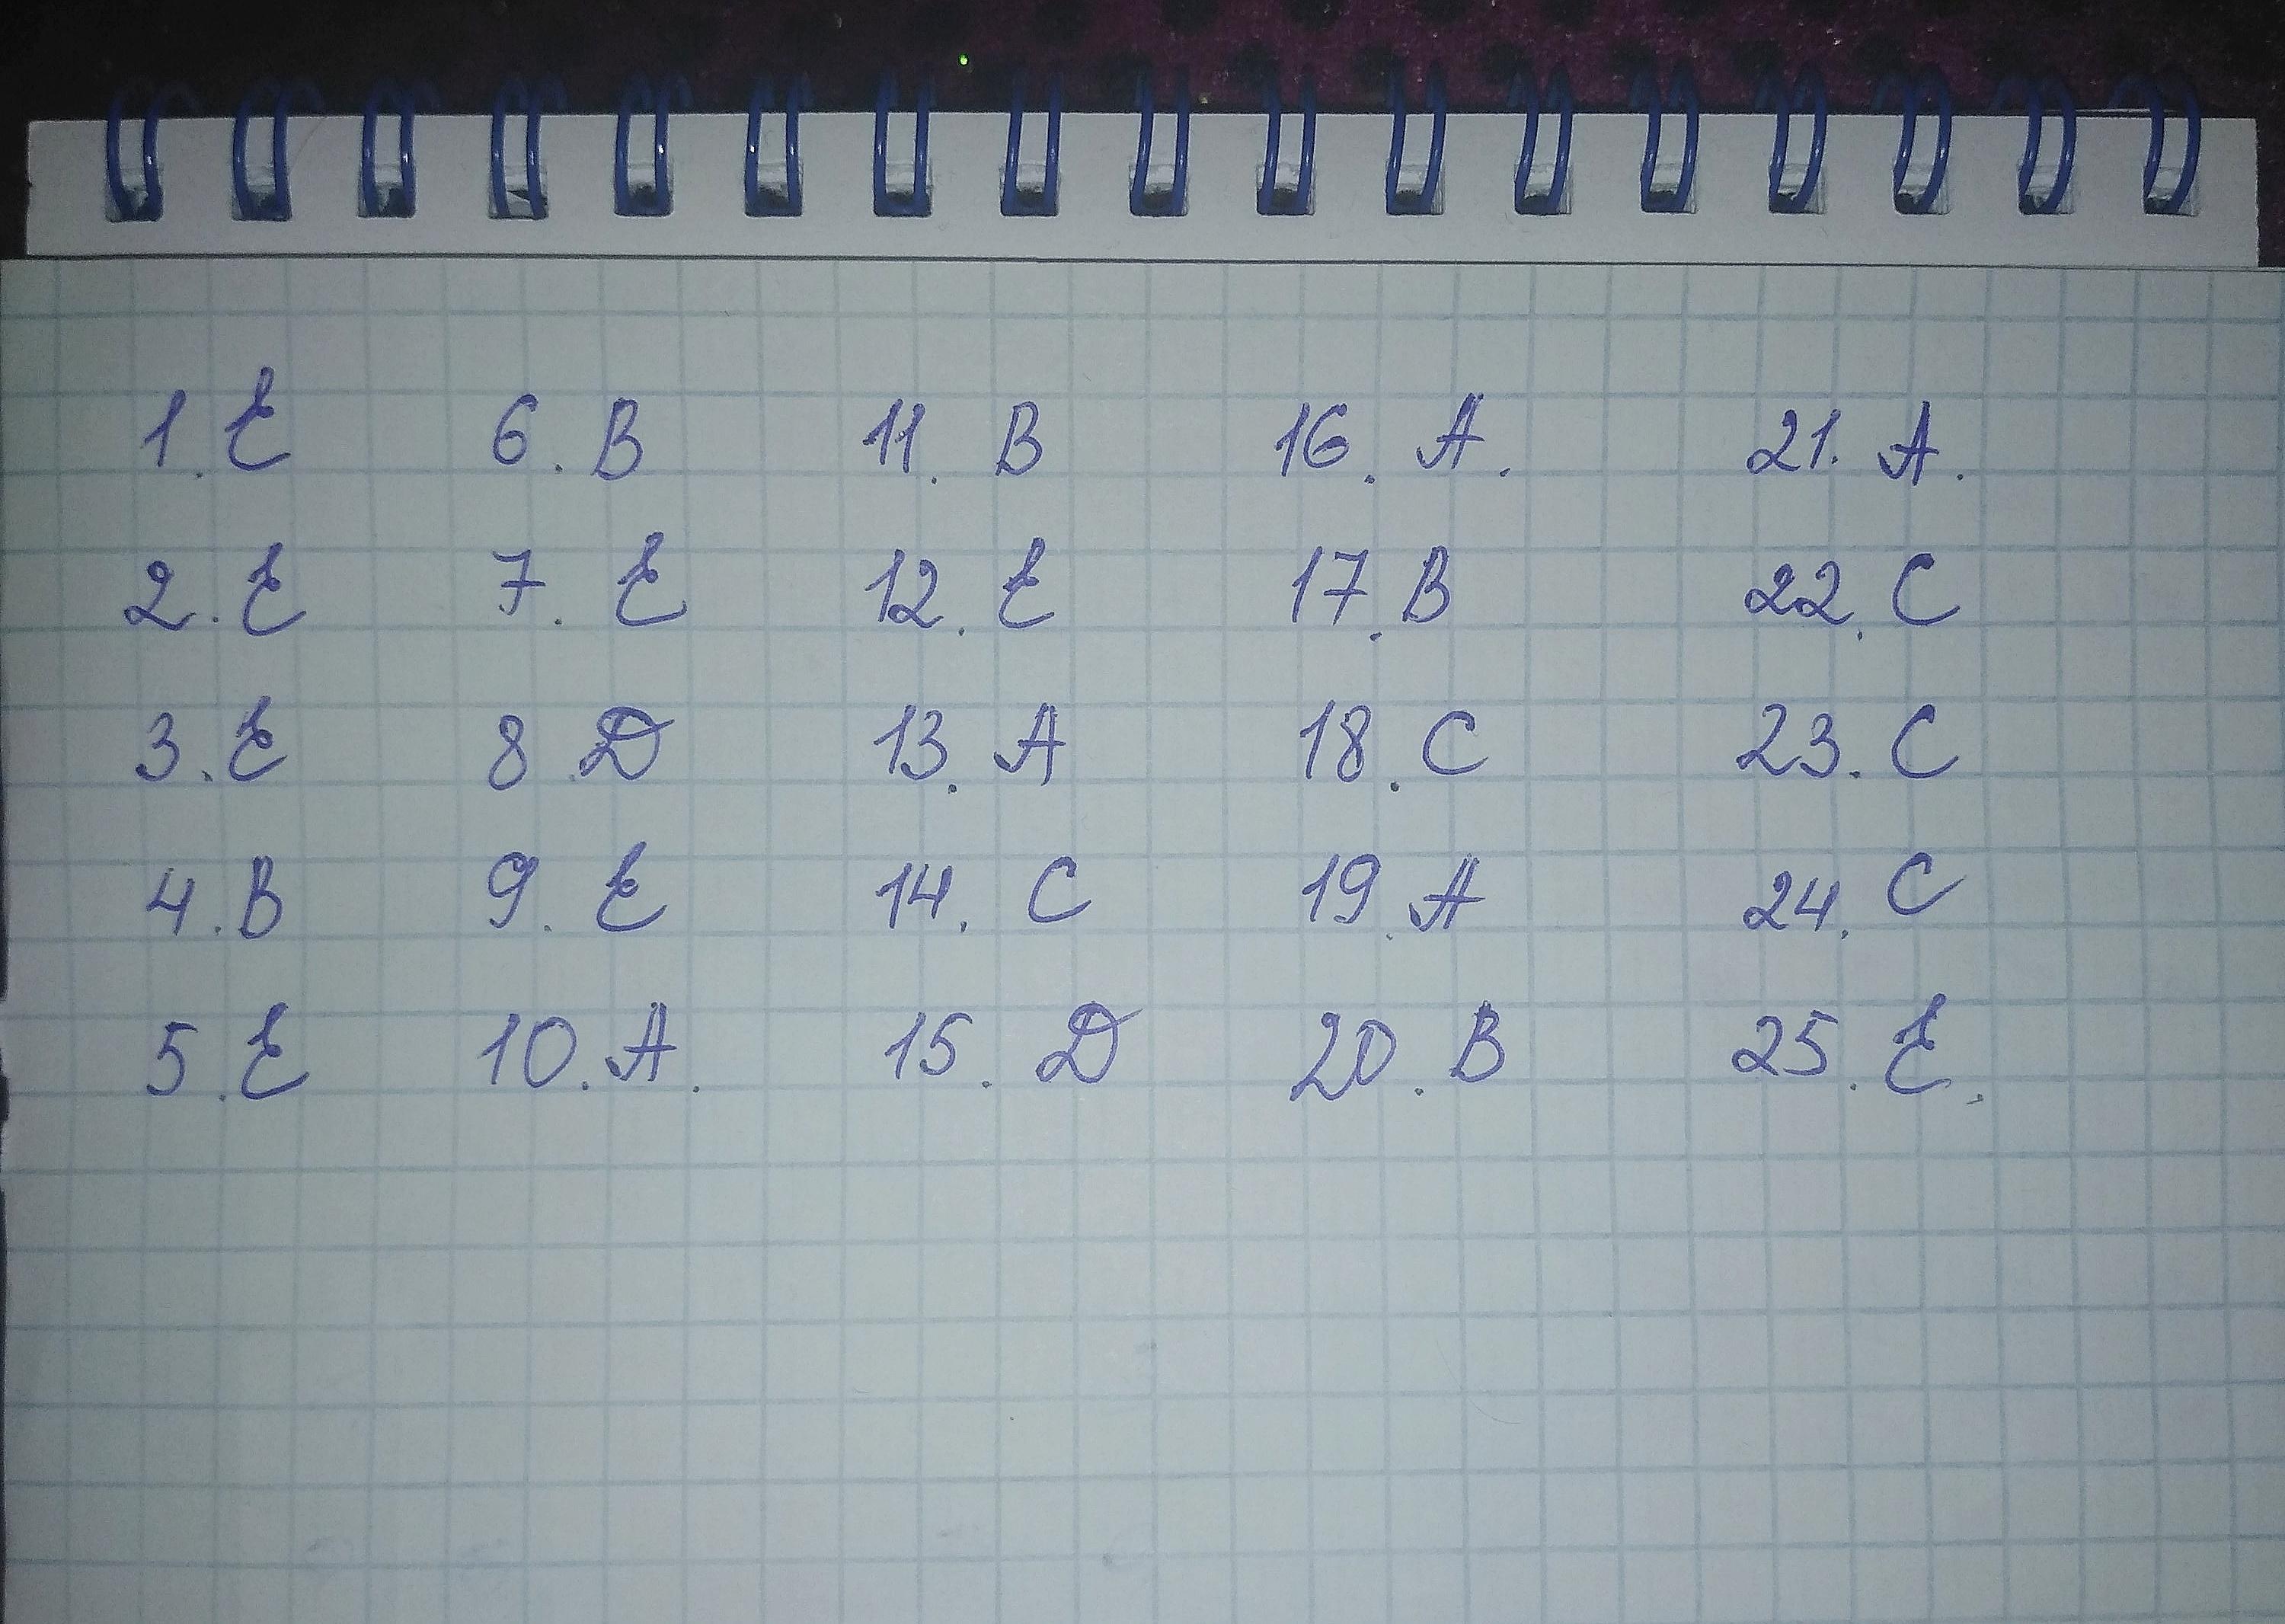 1. E 6. B 11. B 16. A. 21. A.
2. E 7. E 12. E 17. B 22. C
3. E 8. D 13. A 18. C 23. C
4. B 9. E 14. C 19. A 24. C
5. E 10. A. 15. D 20. B 25. E.